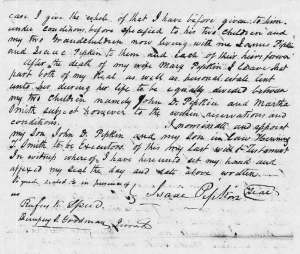 case I give the whole of that I have before given to him
under conditions before specified to his two Children and
my two Grandchildren now living with me Louisa Pipkin
and Isaac Pipkin to them and each of their heirs forever
After the death of my wife Mary Pipkin I leave that
part both of my Real as well as personal estate lent
unto her during her life to be equally divided between
my two Children namely John D. Pipkin and Martha
Smith subject however to the within reservations and
conditions. I nominate and appoint
my Son John D. Pipkin and my Son in Law
T. Smith to be Executors of this my last will & Testament
In witness whereof I have hereunto set my hand and
affixed my Seal the day and date above written
Signed sealed in presence of
Isaac Pipkin Seal
Rufus K. Speed
Dempsey S. Goodman Jurat